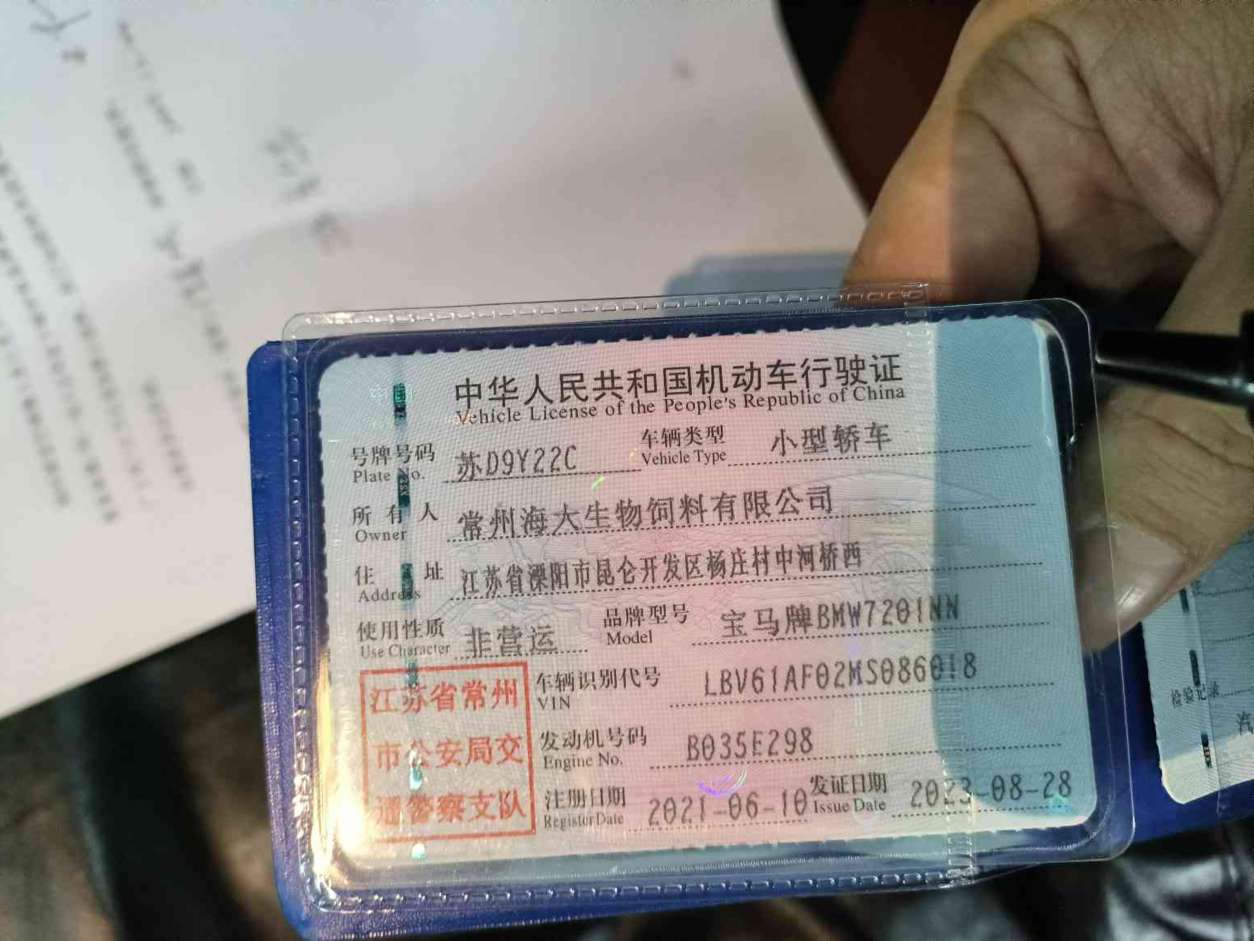 中华人民共和国机动车行驶证
Vehicle License of the People's Republic of China
号牌号码 苏D9Y22C 车辆类型 小型轿车
Plate No. Vehicle Type
所有人 常州海大生物饲料有限公司
Owner
住址 江苏省溧阳市昆仑开发区杨庄村中河桥西
Address
使用性质 非营运 品牌型号 宝马牌BMW7201NN
Use Character Model
江苏省常州
市公安局交
通警察支队
车辆识别代号 LBV61AF02MS086018
VIN
发动机号码 B035E298
Engine No.
注册日期 2021-06-10 发证日期 2023-08-28
Register Date Issue Date
检验记录